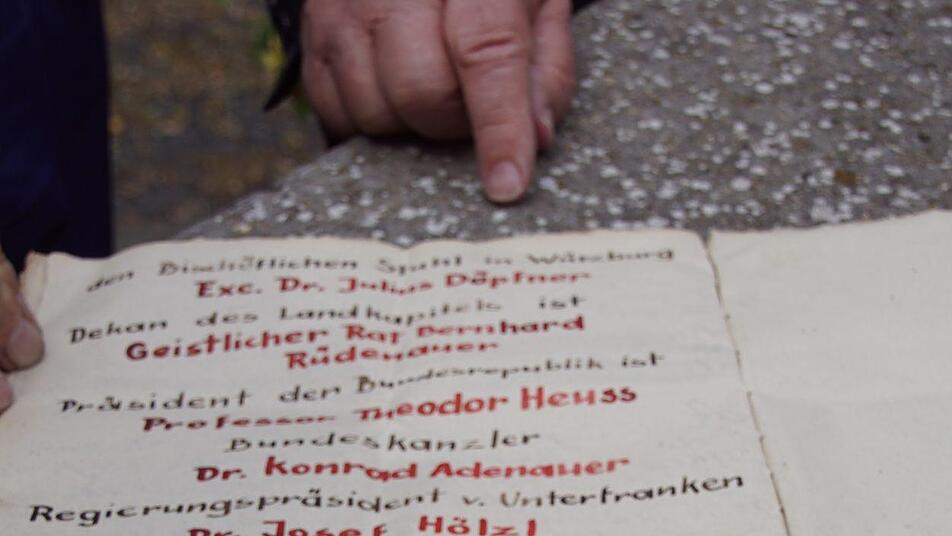 den Bischöflichen Stuhl in Würzburg
Exc. Dr. Julius Döpfner
Dekan des Landkapitels ist
Geistlicher Rat Bernhard
Rüdenauer
Präsident der Bundesrepublik ist
Professor Theodor Heuss
Bundeskanzler
Dr. Konrad Adenauer
Regierungspräsident v. Unterfranken
Dr. Josef Hölzl